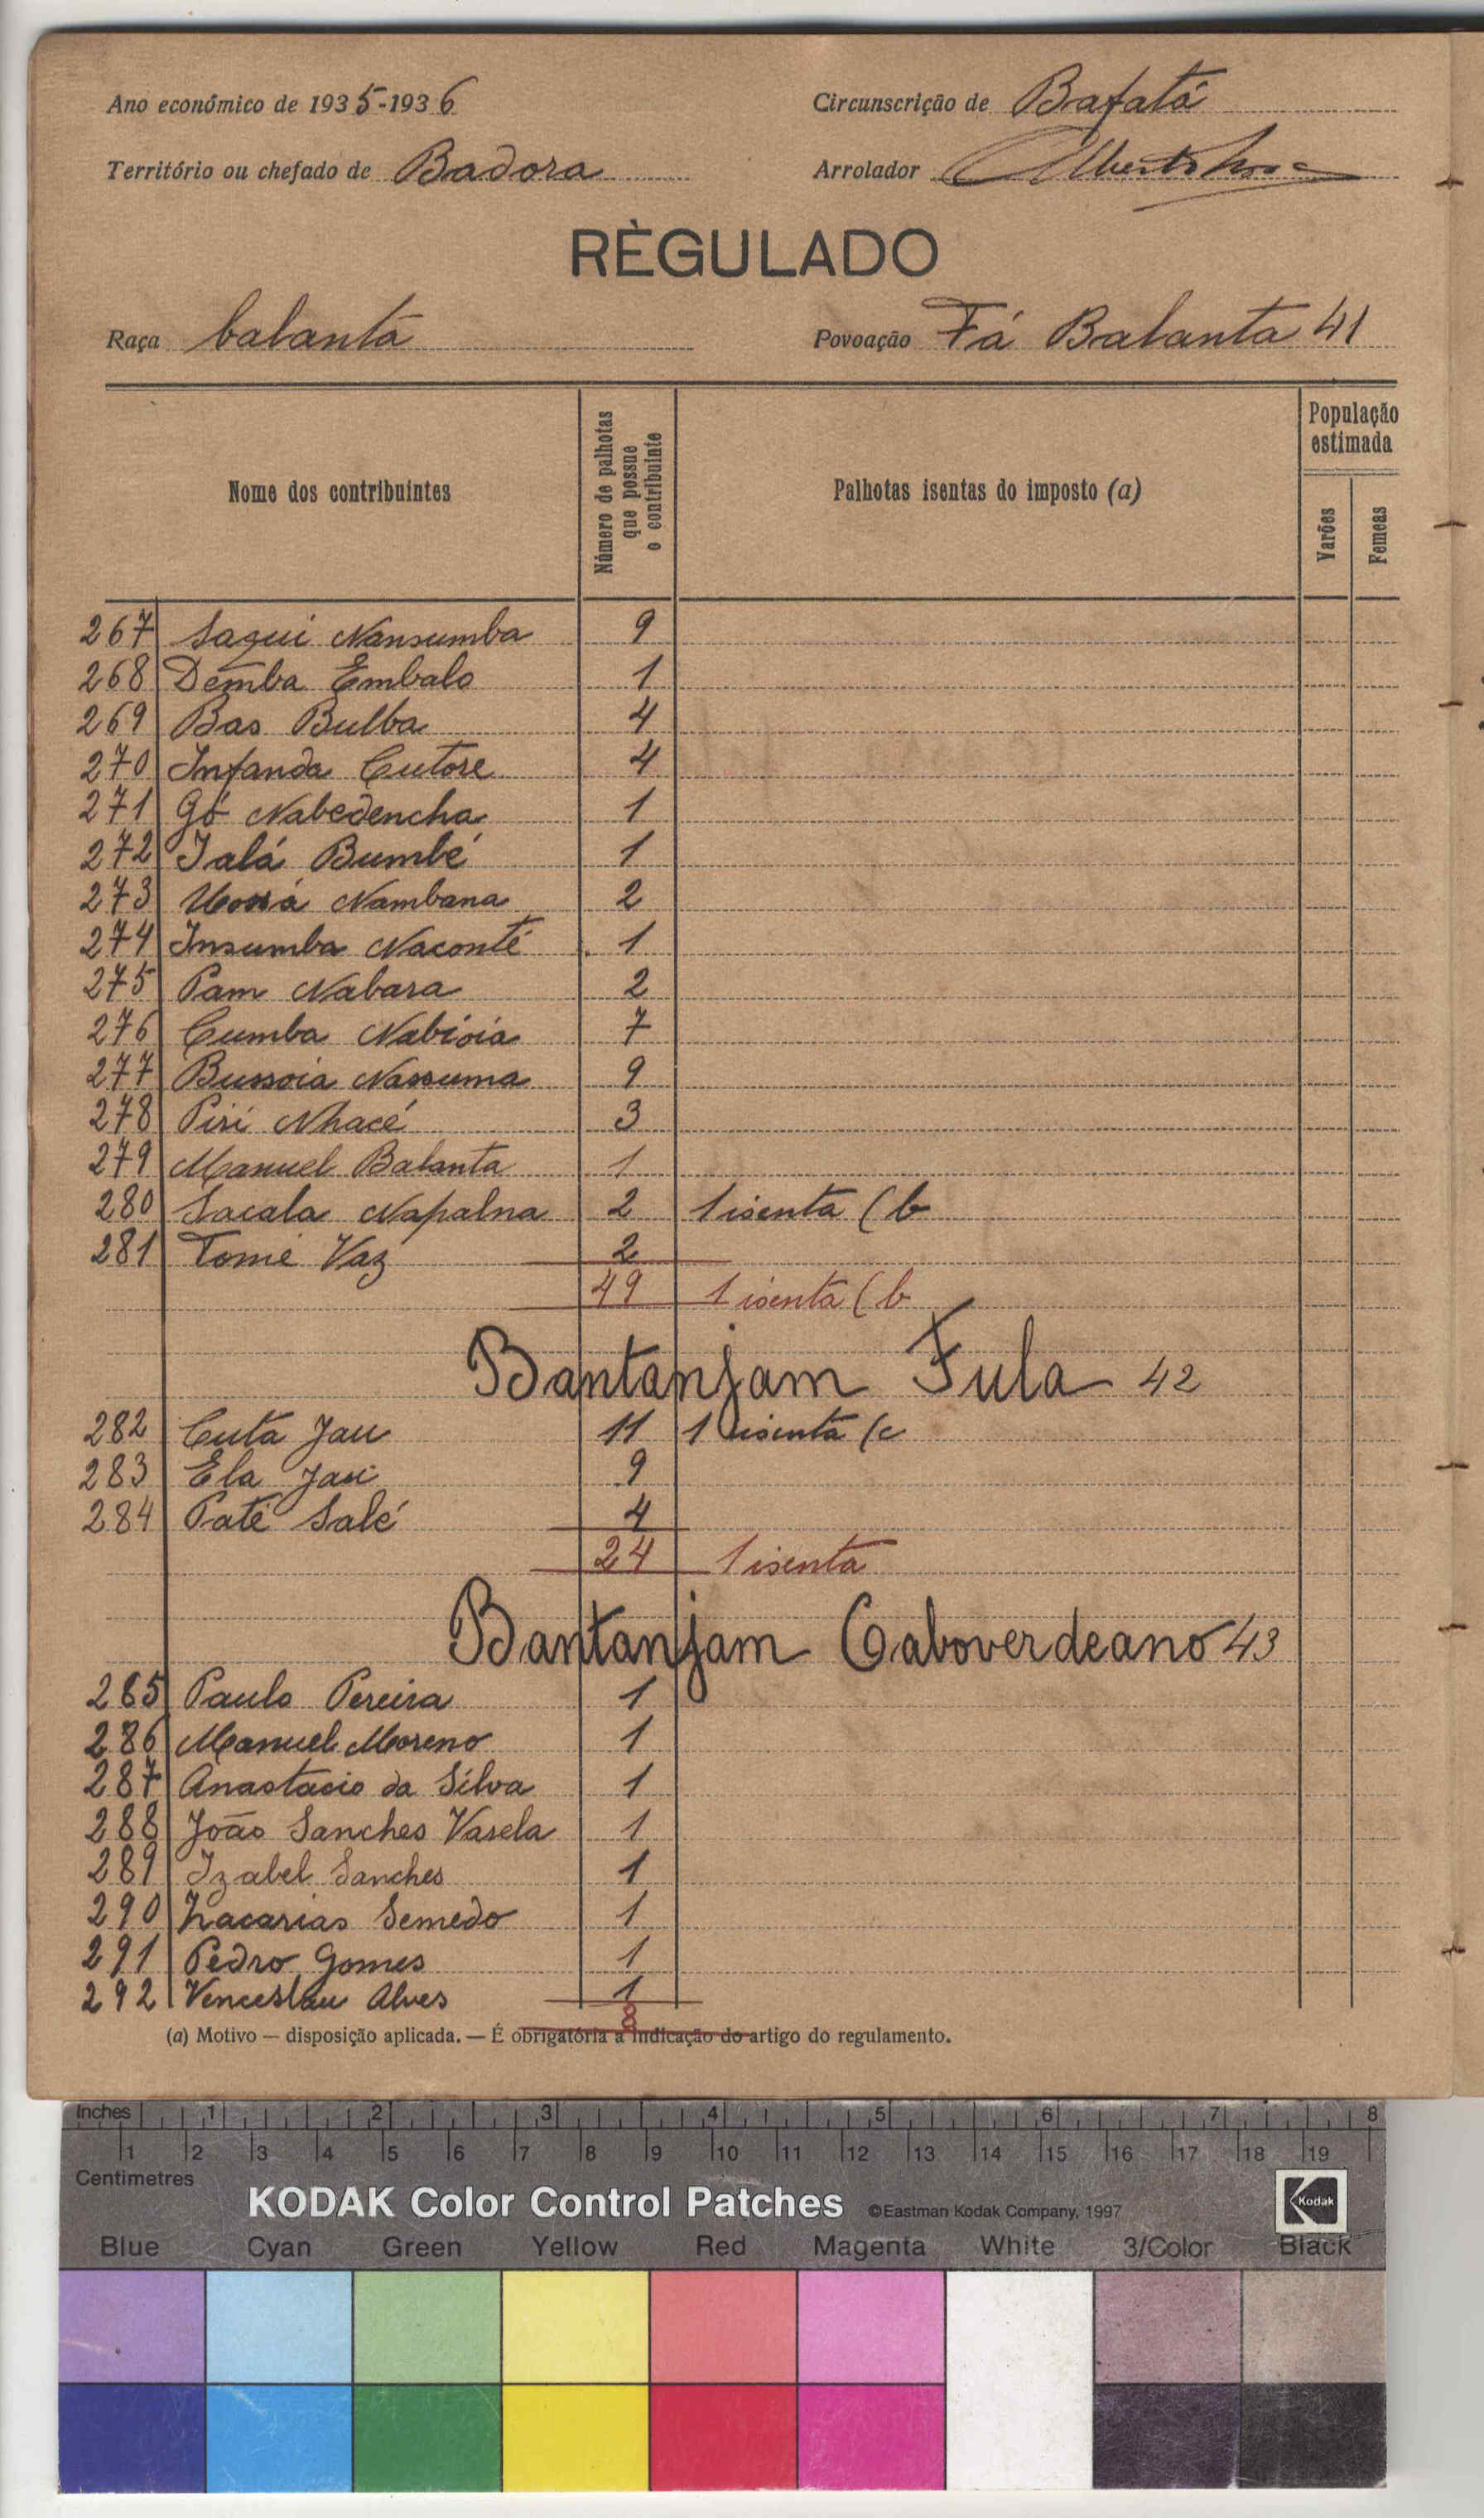 Ano económico de 1935-1936 Circunscrição de Bafatá
Território ou chefado de Badora Arrolador Alberto
RÈGULADO
Raça balanta Povoação Fá Balanta 41
Nome dos contribuintes
Número de palhotas que possue o contribuinte
Palhotas isentas do imposto (a)
População estimada
Varões
Femeas
267 Sagui Nansumba 9
268 Demba Embalo 1
269 Bas Bulba 4
270 Infanda Cutore 4
271 Gó Nabedencha 1
272 Ialá Bumbé 1
273 Nambana 2
274 Insumba Naconté 1
275 Pam Nabara 2
276 Cumba Nabioia 7
277 Bussoia Nassuma 9
278 Piri Nhacé 3
279 Manuel Balanta 1
280 Sacala Napalna 2 1 isenta (b
281 Tomé Vaz 2
49 1 isenta (b
Bantanjam Fula 42
282 Cuta Jau 11 1 isenta (c
283 Ela Jau 9
284 Paté Salé 4
24 1 isenta
Bantanjam Caboverdeano 43
285 Paulo Pereira 1
286 Manuel Moreno 1
287 Anastacio da Silva 1
288 João Sanches Varela 1
289 Izabel Sanches 1
290 Zacarias Semedo 1
291 Pedro Gomes 1
292 Venceslau Alves 1
8
(a) Motivo — disposição aplicada. — É obrigatória a indicação do artigo do regulamento.
Inches 1 2 3 4 5 6 7 8
1 2 3 4 5 6 7 8 9 10 11 12 13 14 15 16 17 18 19
Centimetres
KODAK Color Control Patches ©Eastman Kodak Company, 1997 Kodak
Blue Cyan Green Yellow Red Magenta White 3/Color Black